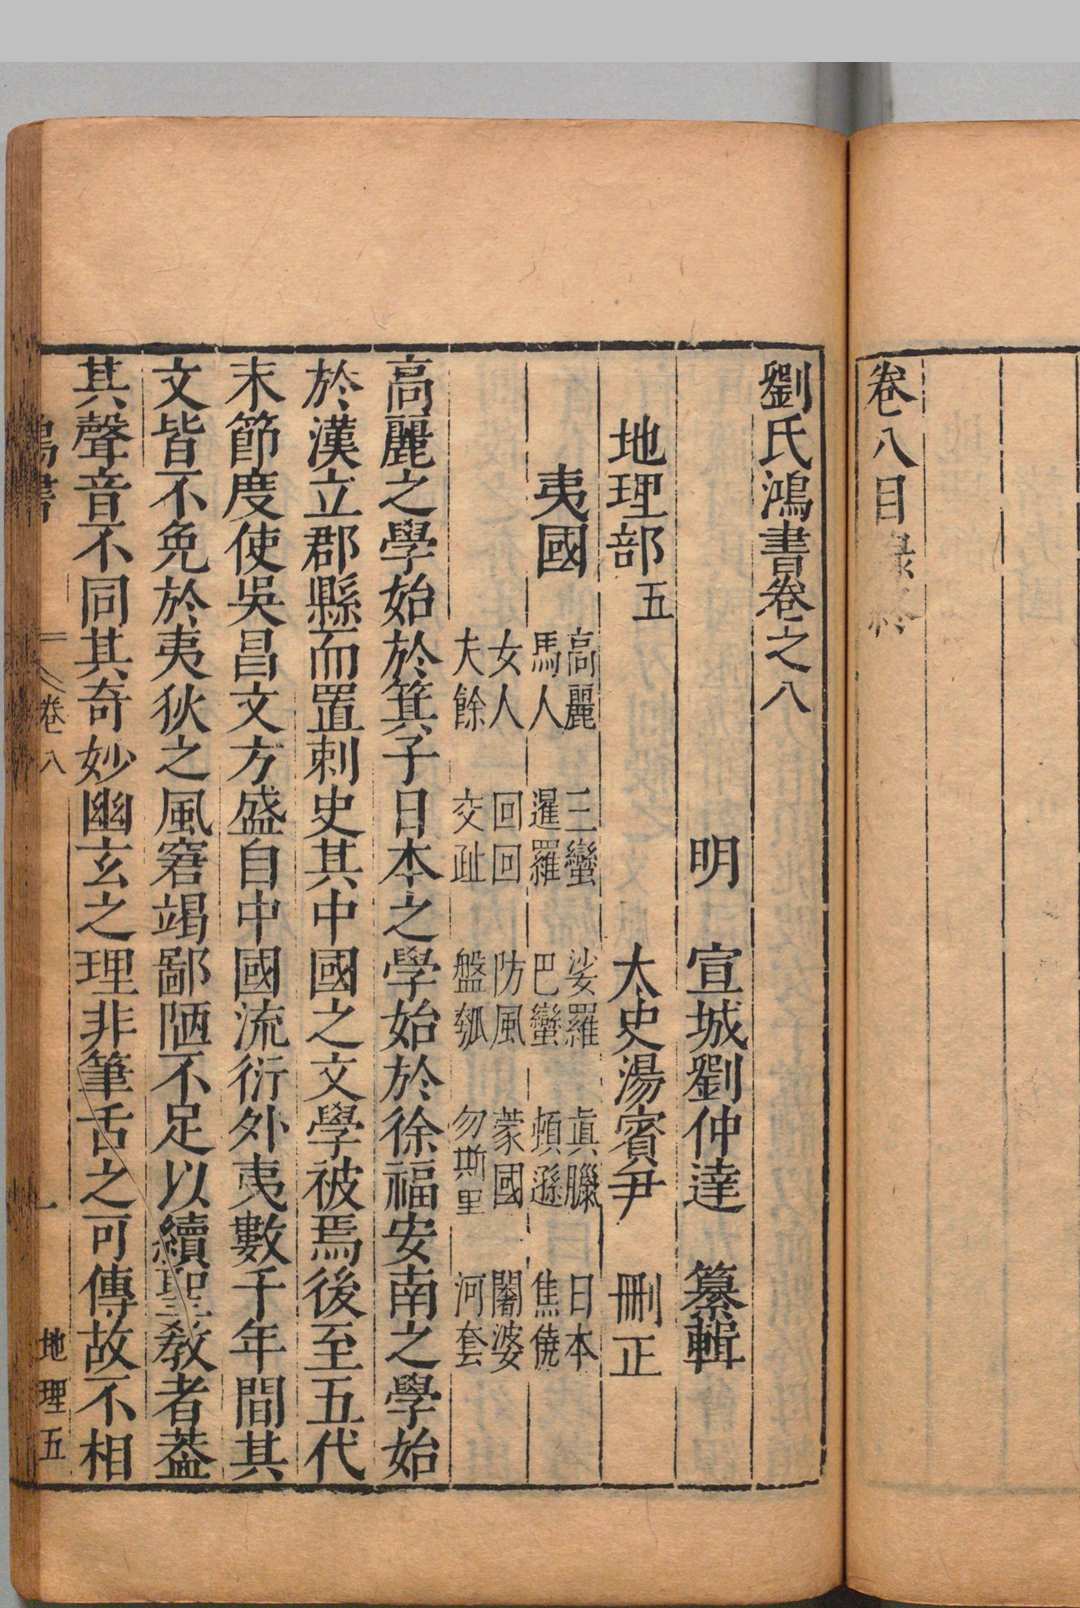 卷八目錄終
劉氏鴻書卷之八
明　宣城劉仲達　纂輯
地理部五　太史湯賓尹　刪正
夷國
高麗　三蠻　娑羅　眞臘　日本
馬人　暹羅　巴蠻　頓遜　焦僥
女人　回回　防風　蒙國　闍婆
夫餘　交趾　盤瓠　勿斯里　河套
高麗之學始於箕子日本之學始於徐福安南之學始
於漢立郡縣而置刺史其中國之文學彼焉後至五代
末節度使吳昌文方盛自中國流衍外夷數千年間其
文皆不免於夷狄之風窘竭鄙陋不足以續聖教者葢
其聲音不同其奇妙幽玄之理非筆舌之可傳故不相
鴻書　卷八　一　地理五